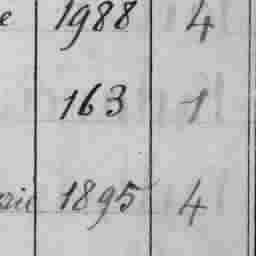 e 1988 4
163 1
1895 4